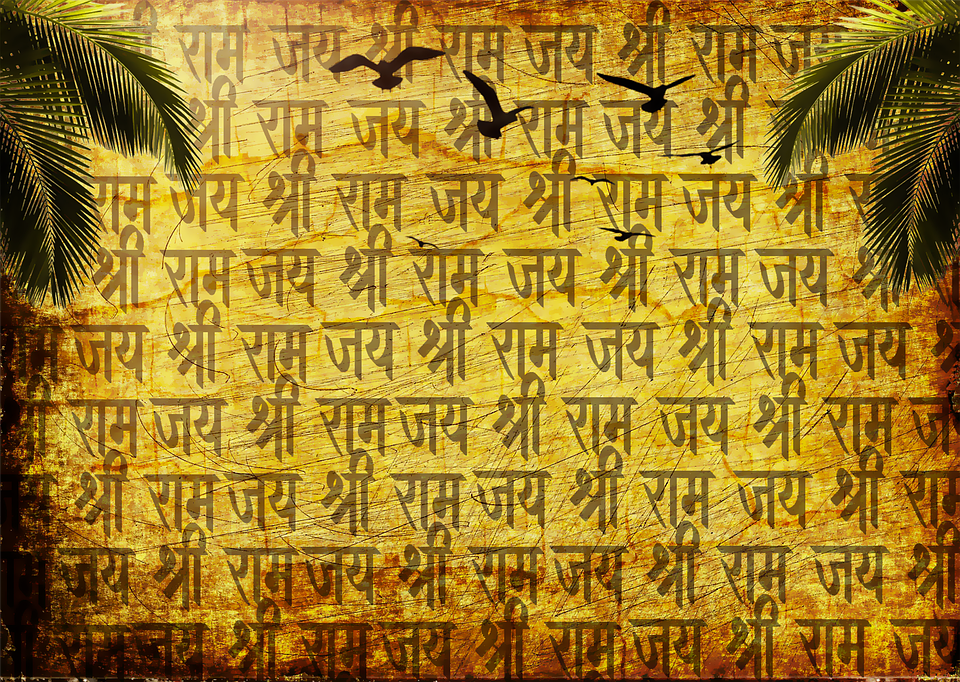 राम जय श्री राम जय श्री राम जय
श्री राम जय श्री राम जय श्री
राम जय श्री राम जय श्री राम जय श्री
श्री राम जय श्री राम जय श्री राम जय श्री
राम जय श्री राम जय श्री राम जय श्री राम जय
राम जय श्री राम जय श्री राम जय श्री राम
श्री राम जय श्री राम जय श्री राम जय श्री राम
जय श्री राम जय श्री राम जय श्री राम जय श्री
राम जय श्री राम जय श्री राम जय श्री राम जय